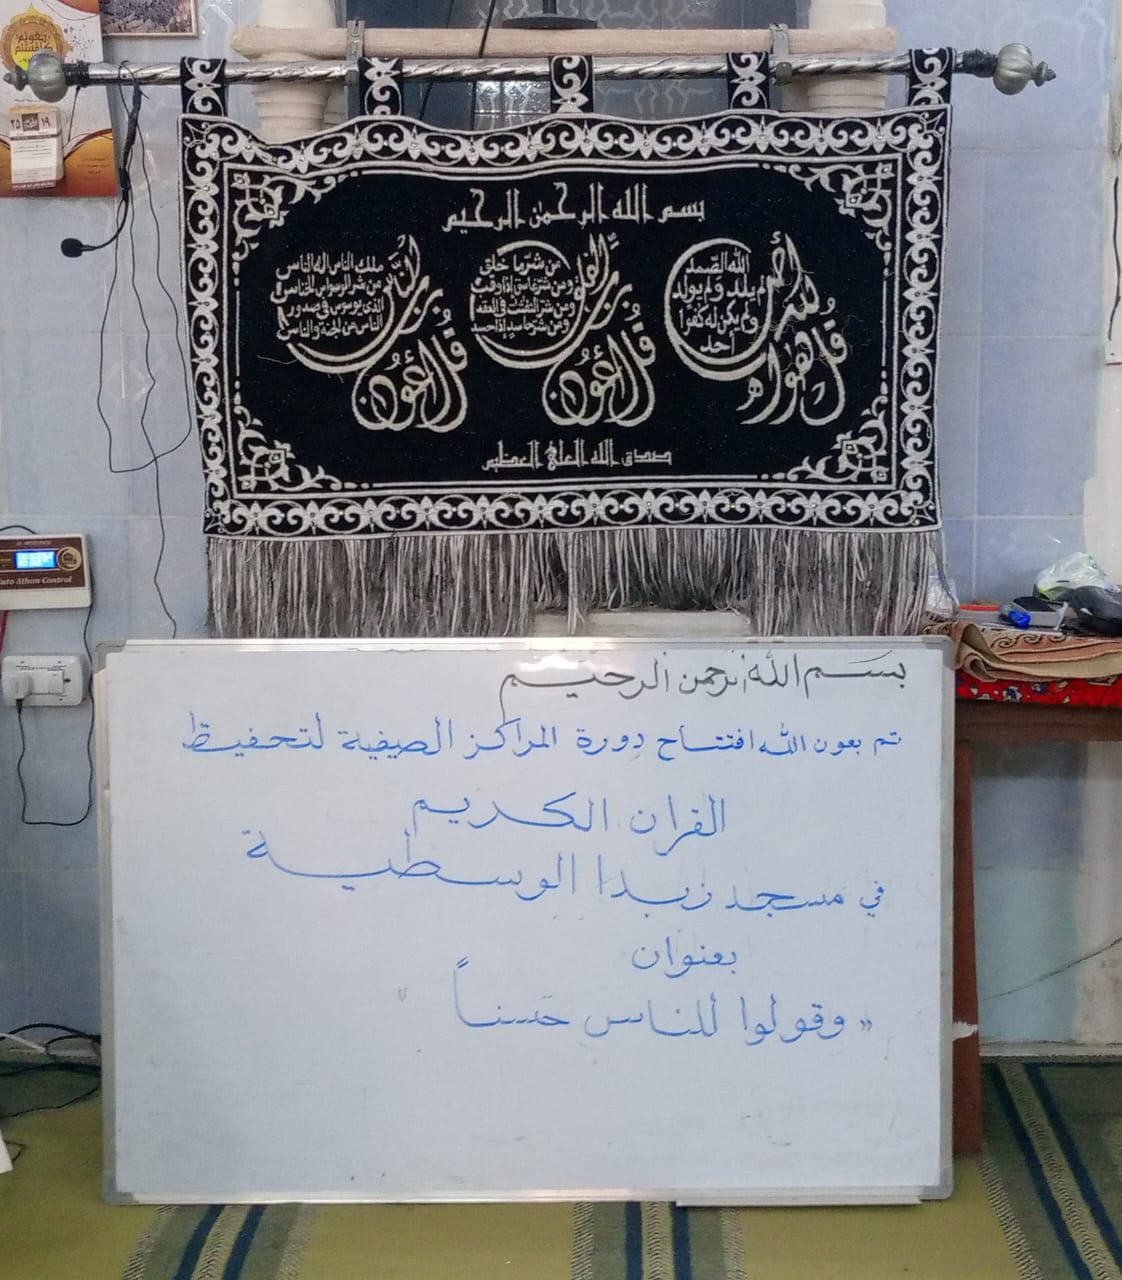 بسم الله الرحمن الرحيم
قل هو الله أحد
الله الصمد
لم يلد ولم يولد
ولم يكن له كفوا
أحد
قل أعوذ برب الفلق
من شر ما خلق
ومن شر غاسق اذا وقب
ومن شر النفثت في العقد
ومن شر حاسد اذا حسد
قل أعوذ برب الناس
ملك الناس اله الناس
من شر الوسواس الخناس
الذي يوسوس في صدور
الناس من الجنة والناس
صدق الله العلي العظيم
Auto Athan Control
١٩
٢٥
بسم الله الرحمن الرحيم
تم بعون الله افتتاح دورة المراكز الصيفية لتحفيظ
القران الكريم
في مسجد زبدا الوسطية
بعنوان
" وقولوا للناس حَسناً "